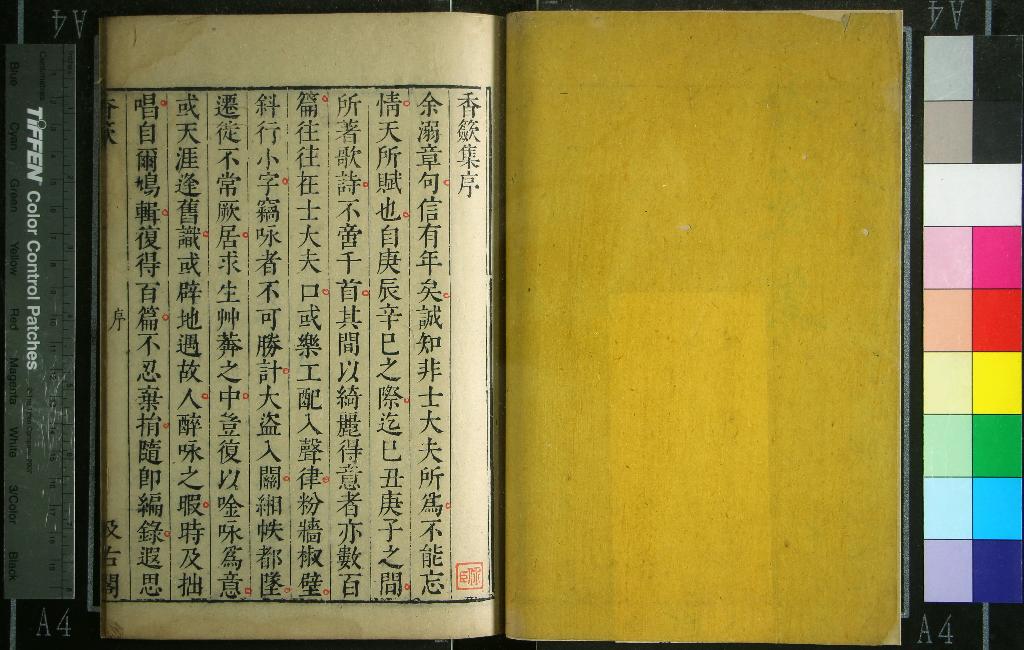 香籢集序
余溺章句信有年矣誠知非士大夫所爲不能忘
情天所賦也自庚辰辛巳之際迄巳丑庚子之間
所著歌詩不啻千首其間以綺麗得意者亦數百
篇往往在士大夫口或樂工配入聲律粉牆椒壁
斜行小字竊咏者不可勝計大盜入關緗帙都墜
遷徙不常厥居求生艸莽之中豈復以唫咏爲意
或天涯逢舊識或辟地遇故人醉咏之暇時及拙
唱自爾鳩輯復得百篇不忍棄捐隨卽編錄遐思
香籢
序
汲古閣
A4
A4
A4
A4
TIFFEN Color Control Patches
Blue
Cyan
Green
Yellow
Red
Magenta
White
3/Color
Black